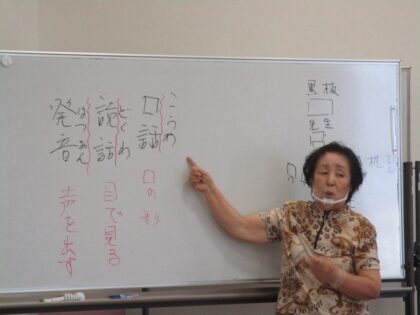 黒板
先生
机
こうわ
口話
口の形
どくわ
読話
目で見る
はつおん
発音
声を出す